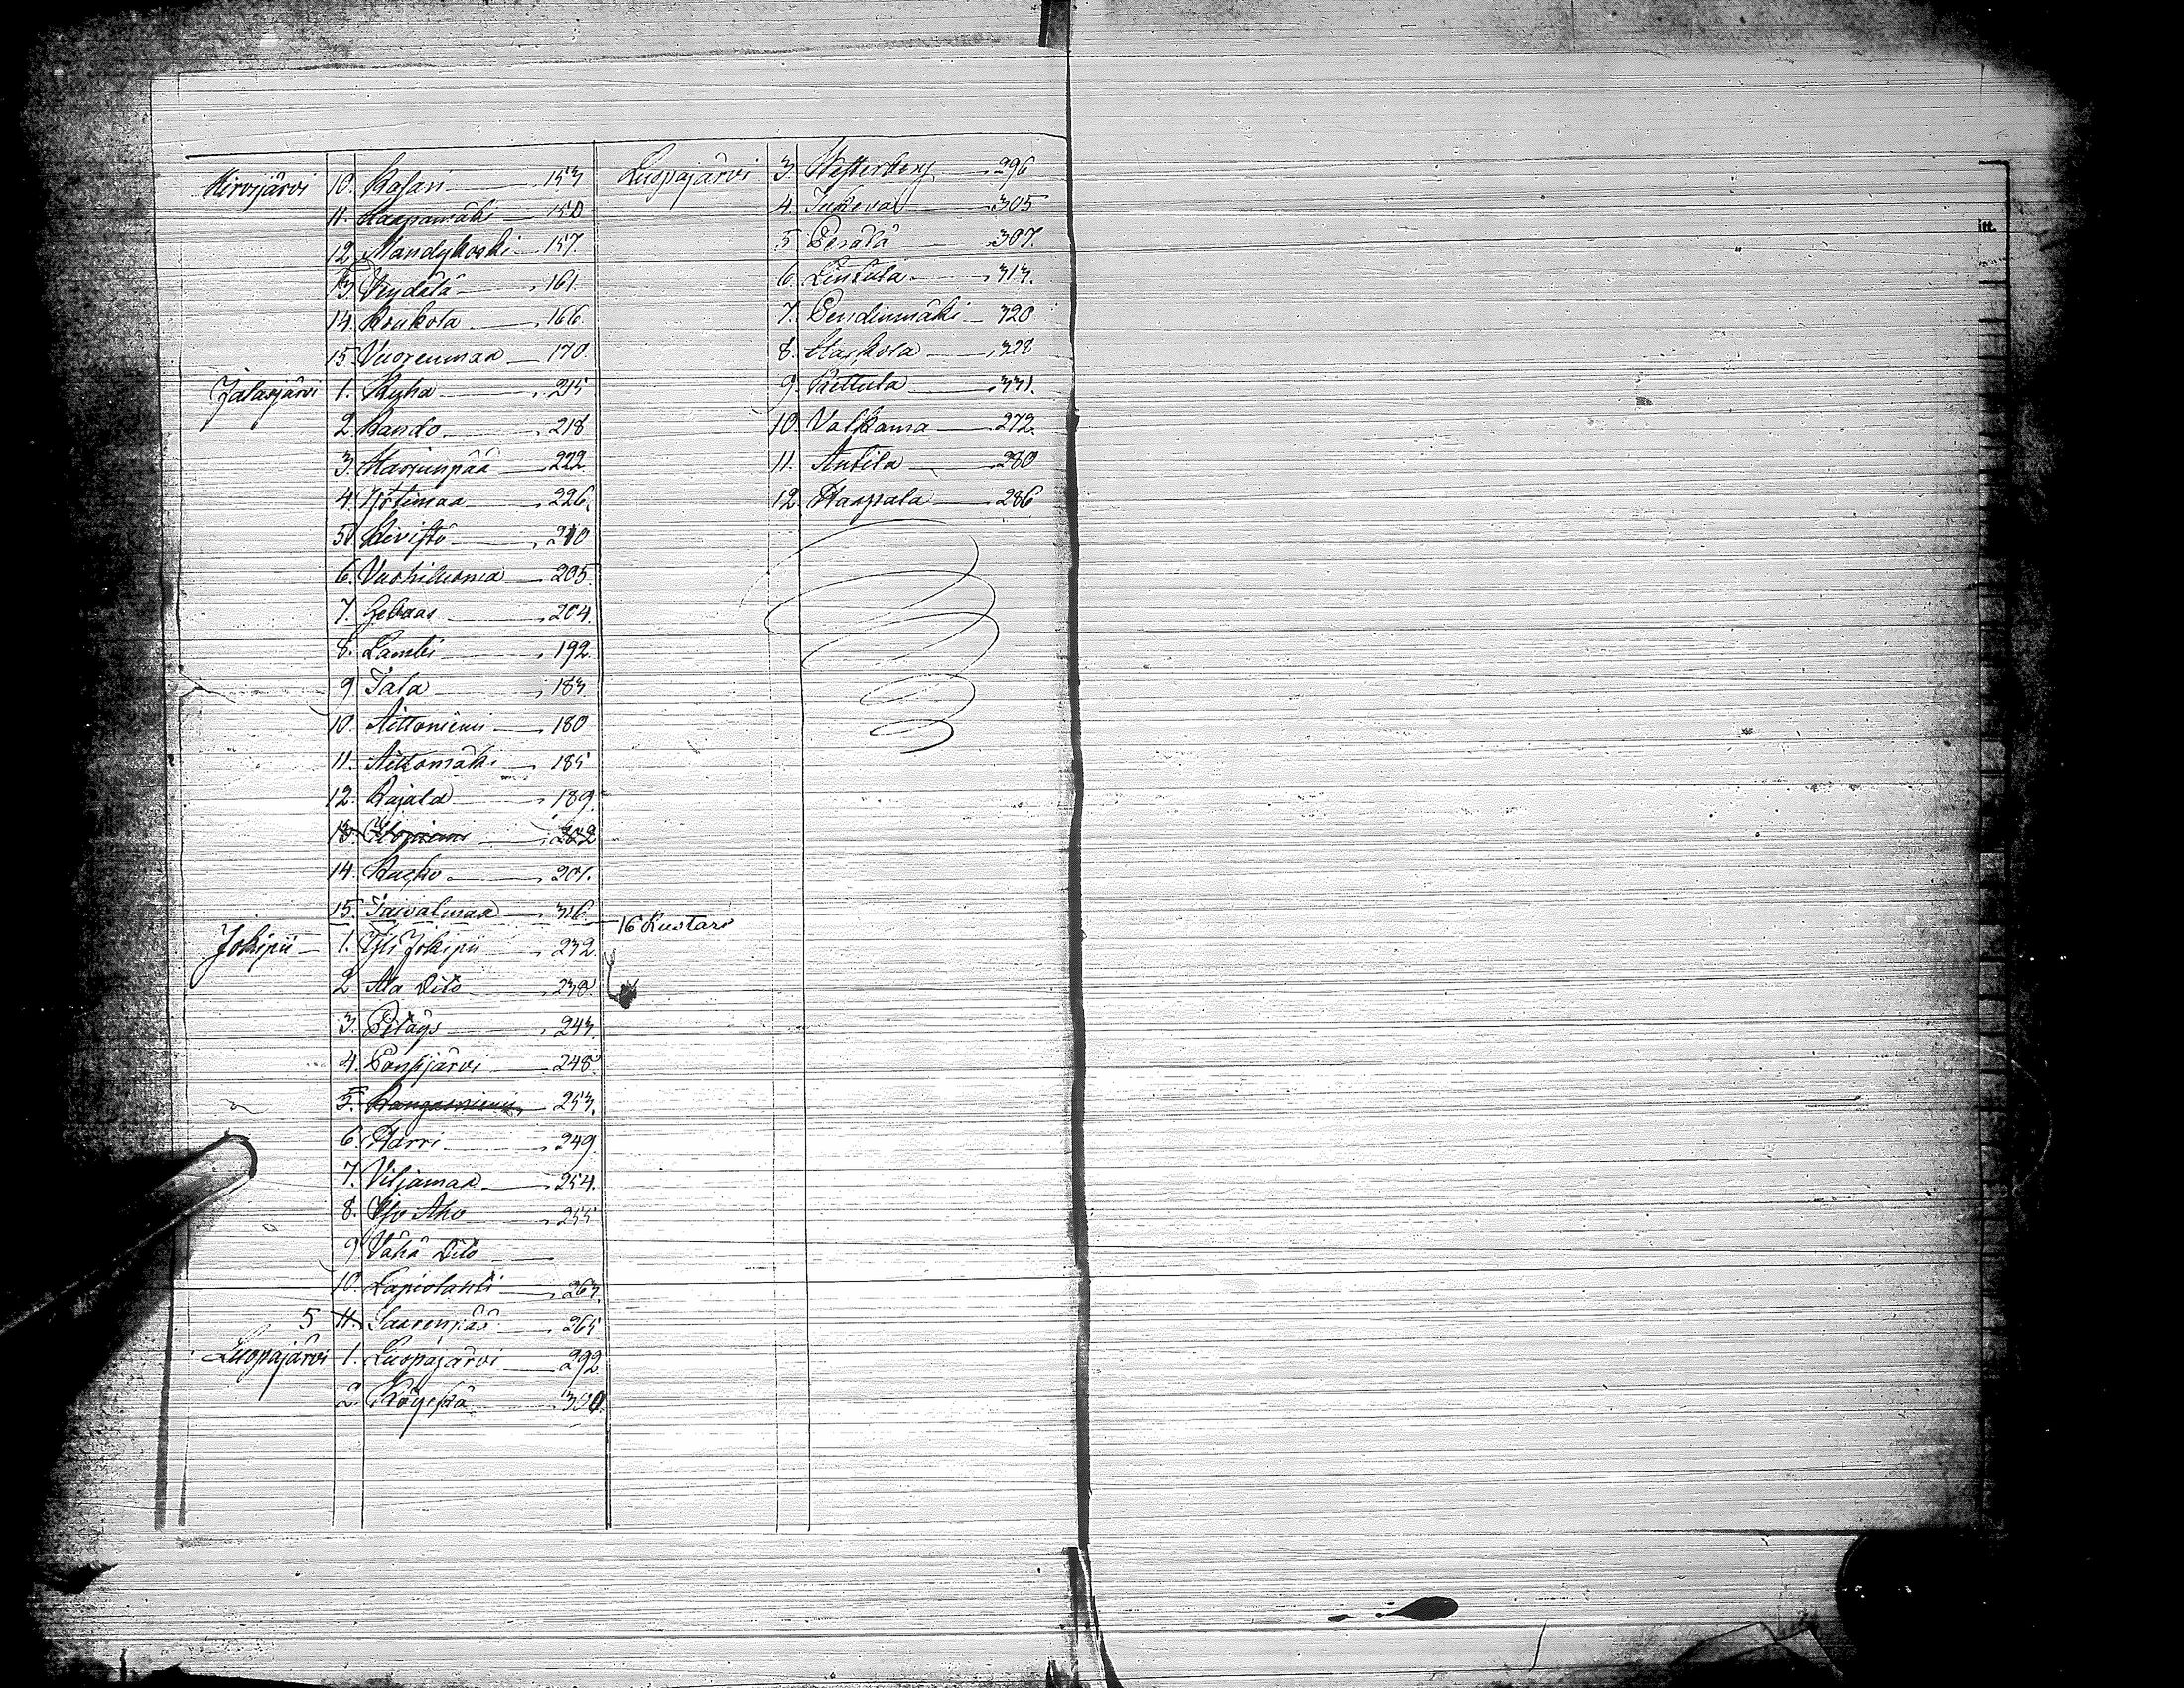 Hirvijärvi 10. Kasari 153
11. Haapamäki 150
12. Mandykoski 157.
13. Vendälä 161.
14. Krukola 166.
15. Vuorenmaa 170
Jalasjärvi 1. Ryha 215
2. Kando 218
3. Harjunpää 222
4. Ijötimaa 226.
5. Kivistö 210
6. Vuohiluoma 205
7. 204.
8. Lambi 192.
9 Jala 183.
10. Aittoniemi 180
11. Aittomäki 185
12. Rajala 189.
13. 232
14. 201.
15. Taivalmaa 316.
16 Rustari
Jokipii 1. Yli Jokipii 232.
2 Ala Dito 238
3. Pitäys 243.
4. Ponsjärvi 248
5. Kangasniemi 253.
6 Harri 249.
7. Viljamaa 254.
8. Iso Aho 255
9 Vähä Dito
10. Lapiolahti 263.
5 11. Saarenpää 265
Luopajärvi 1. Luopajärvi 292
2. 300.
Luopajärvi 3. Westerberg 296
4. Jukeva 305
5 Perälä 307.
6. Lintala 313.
7. Pendinmäki 320
8. Claskola 328
9. Prittula 331.
10 Valkama 272.
11. Antila 280
12. Haapala 286